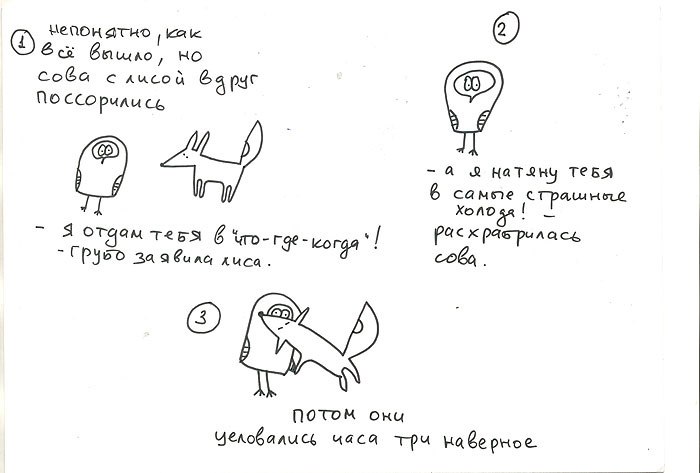 1
непонятно, как
всё вышло, но
сова с лисой вдруг
поссорились
- я отдам тебя в "что-где-когда"!
- грубо заявила лиса.
2
- а я натяну тебя
в самые страшные
холода! -
расхрабрилась
сова.
3
потом они
целовались часа три наверное